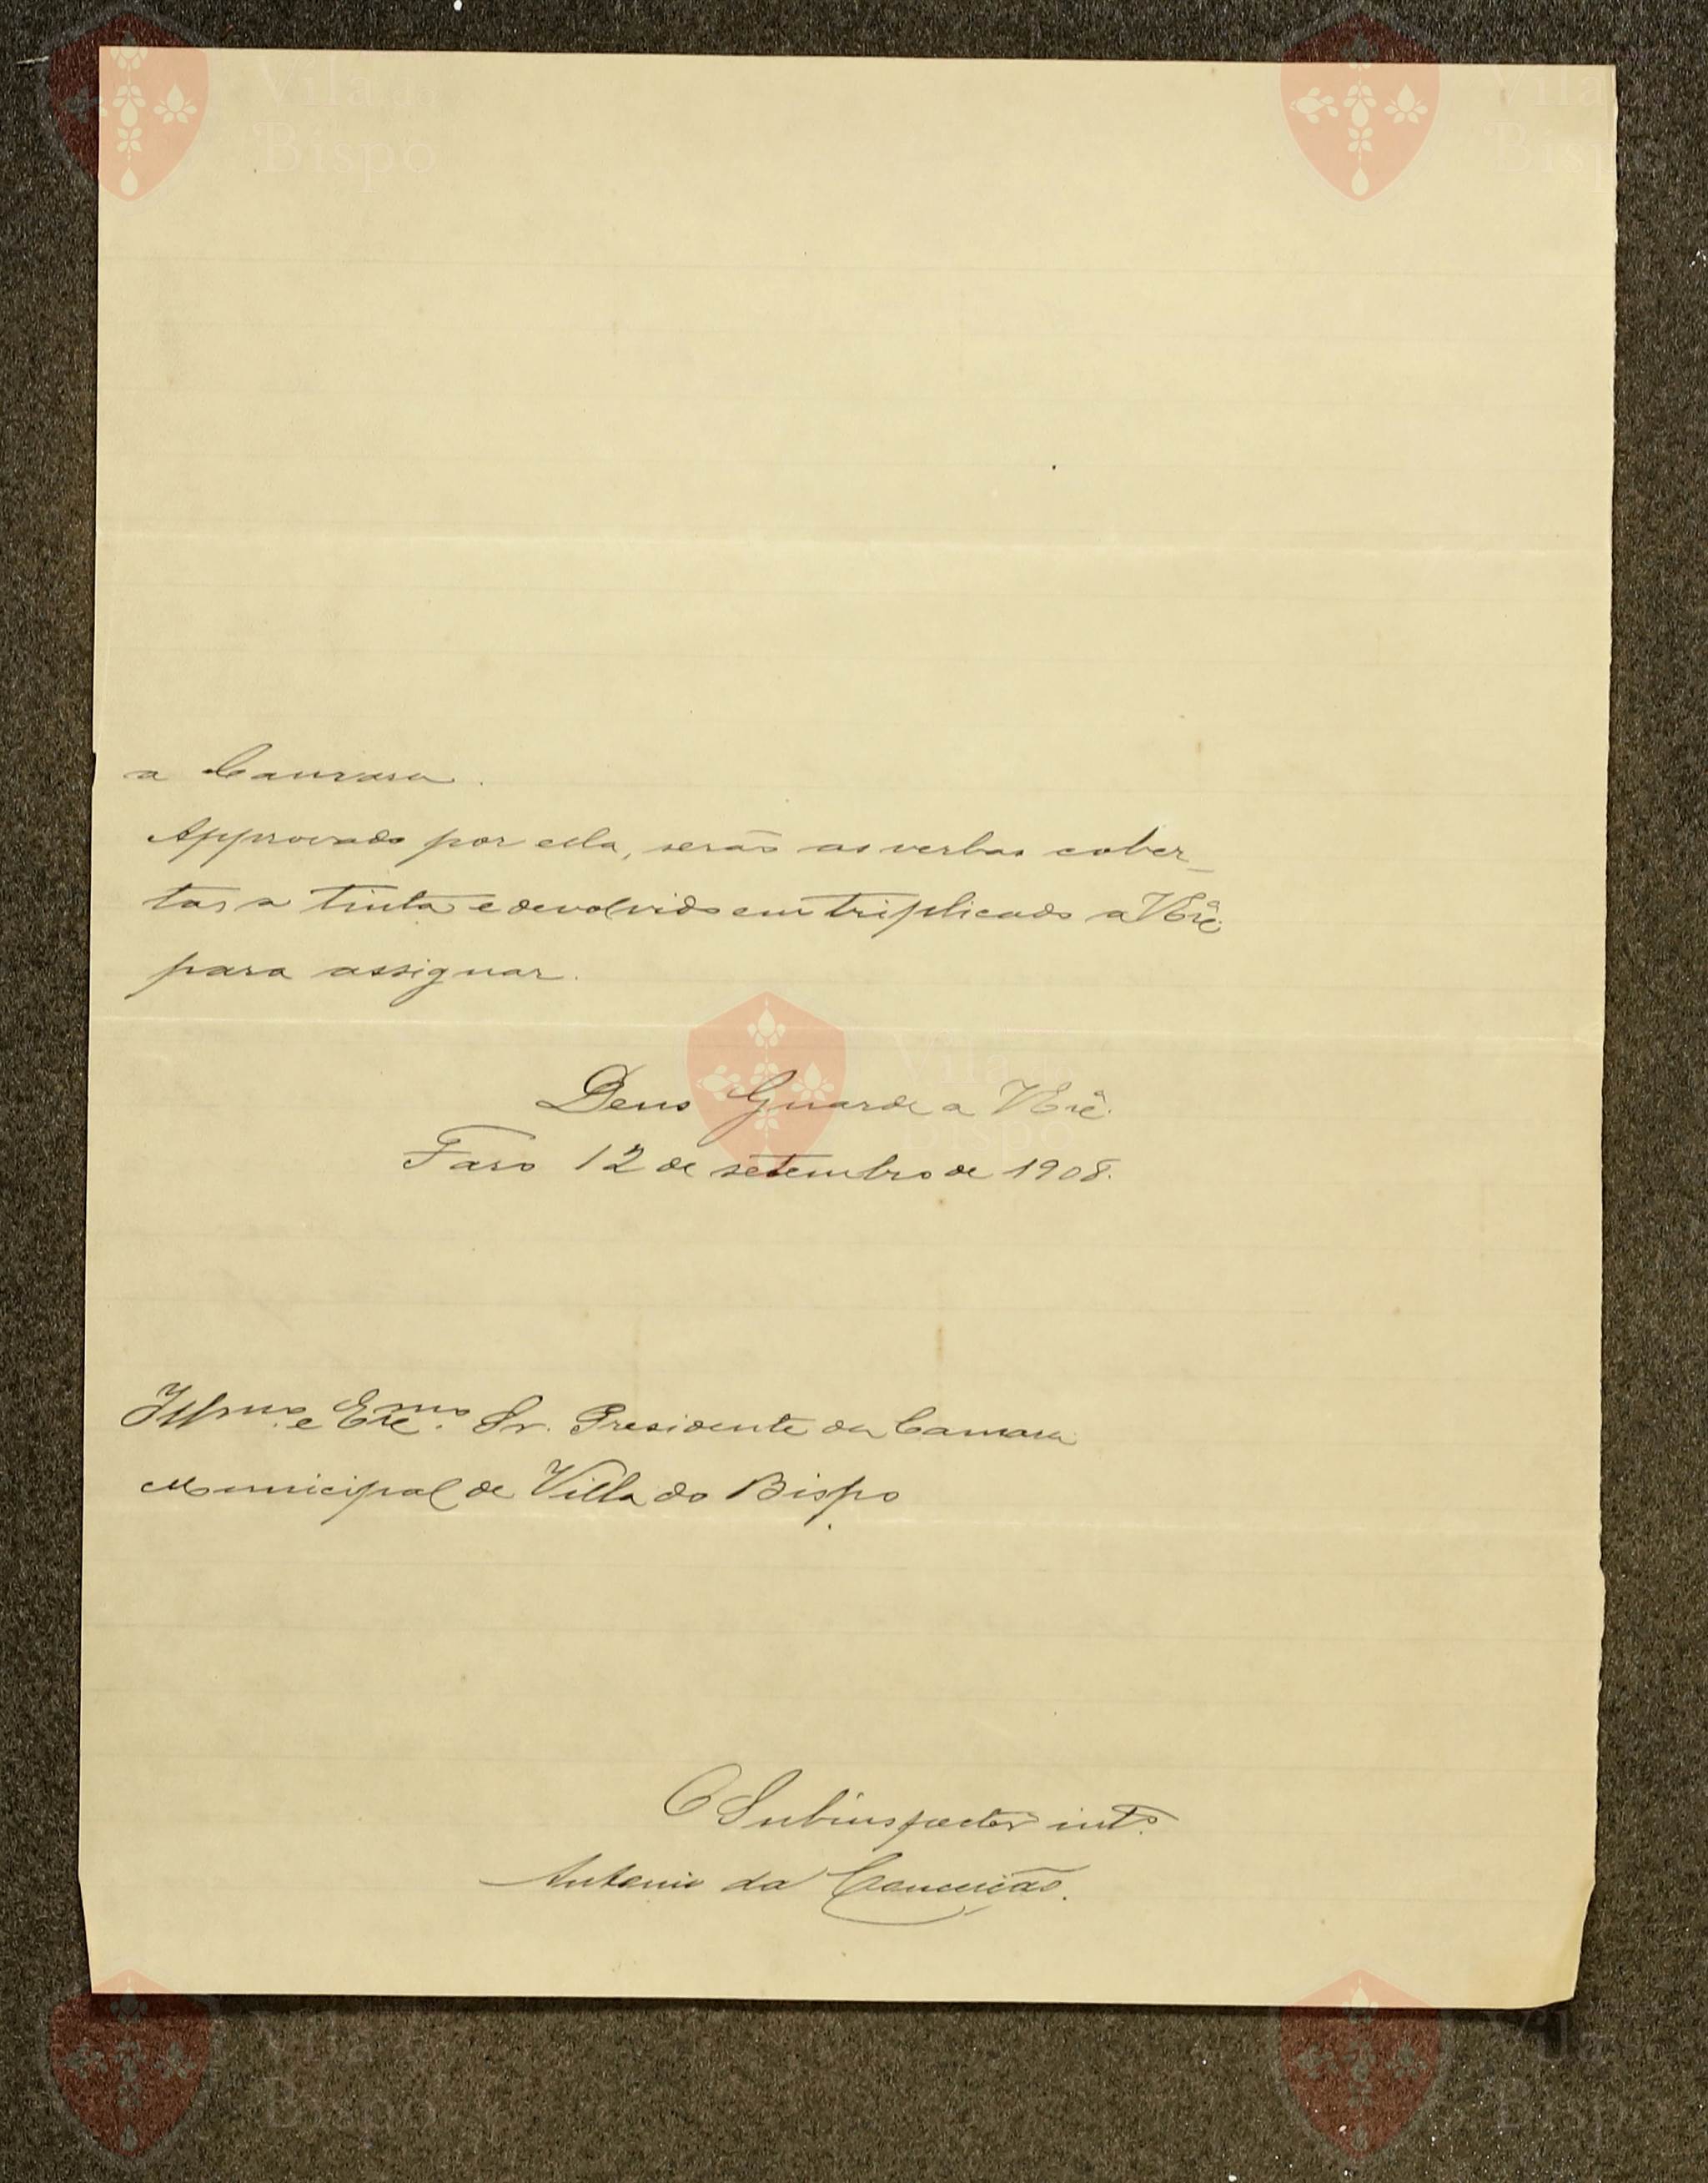 a Camara.
Approvado por ella, serão as verbas cober-
tas a tinta e devolvido em triplicado a V. Exª.
para assignar.
Deus Guarde a V. Exª.
Faro 12 de setembro de 1908.
Illmo. e Exmo. Sr. Presidente da Camara
Municipal de Villa do Bispo
O Subinspector intº.
Antonio da Conceição.
Vila do
Bispo